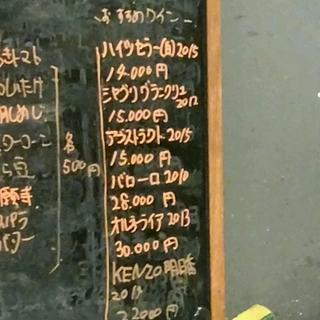 おすすめワイン
ハイツセラー(白)2015
14.000円
シャブリグラークリュ
2012
15.000円
アブストラクト2015
15.000円
バローロ2010
28.000円
オルネライア2013
30.000円
KENZO明日香
22000円
トマト
しいたけ
しめじ
コーン
豆
バター
各
500円